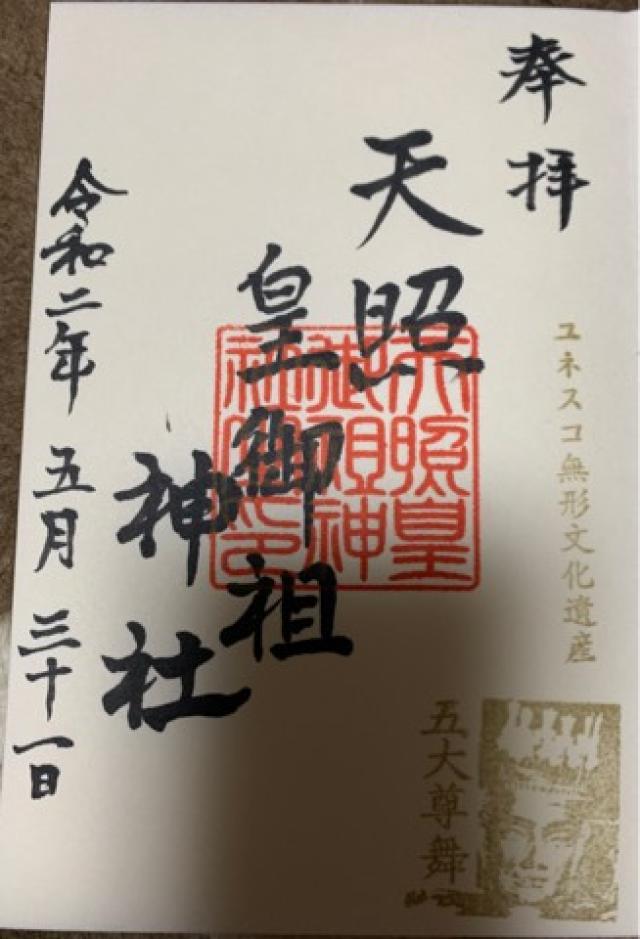 奉拝
ユネスコ無形文化遺産
五大尊舞
天照
皇御祖
神社
天照皇
御祖神
社
印
令和二年 五月 三十一日